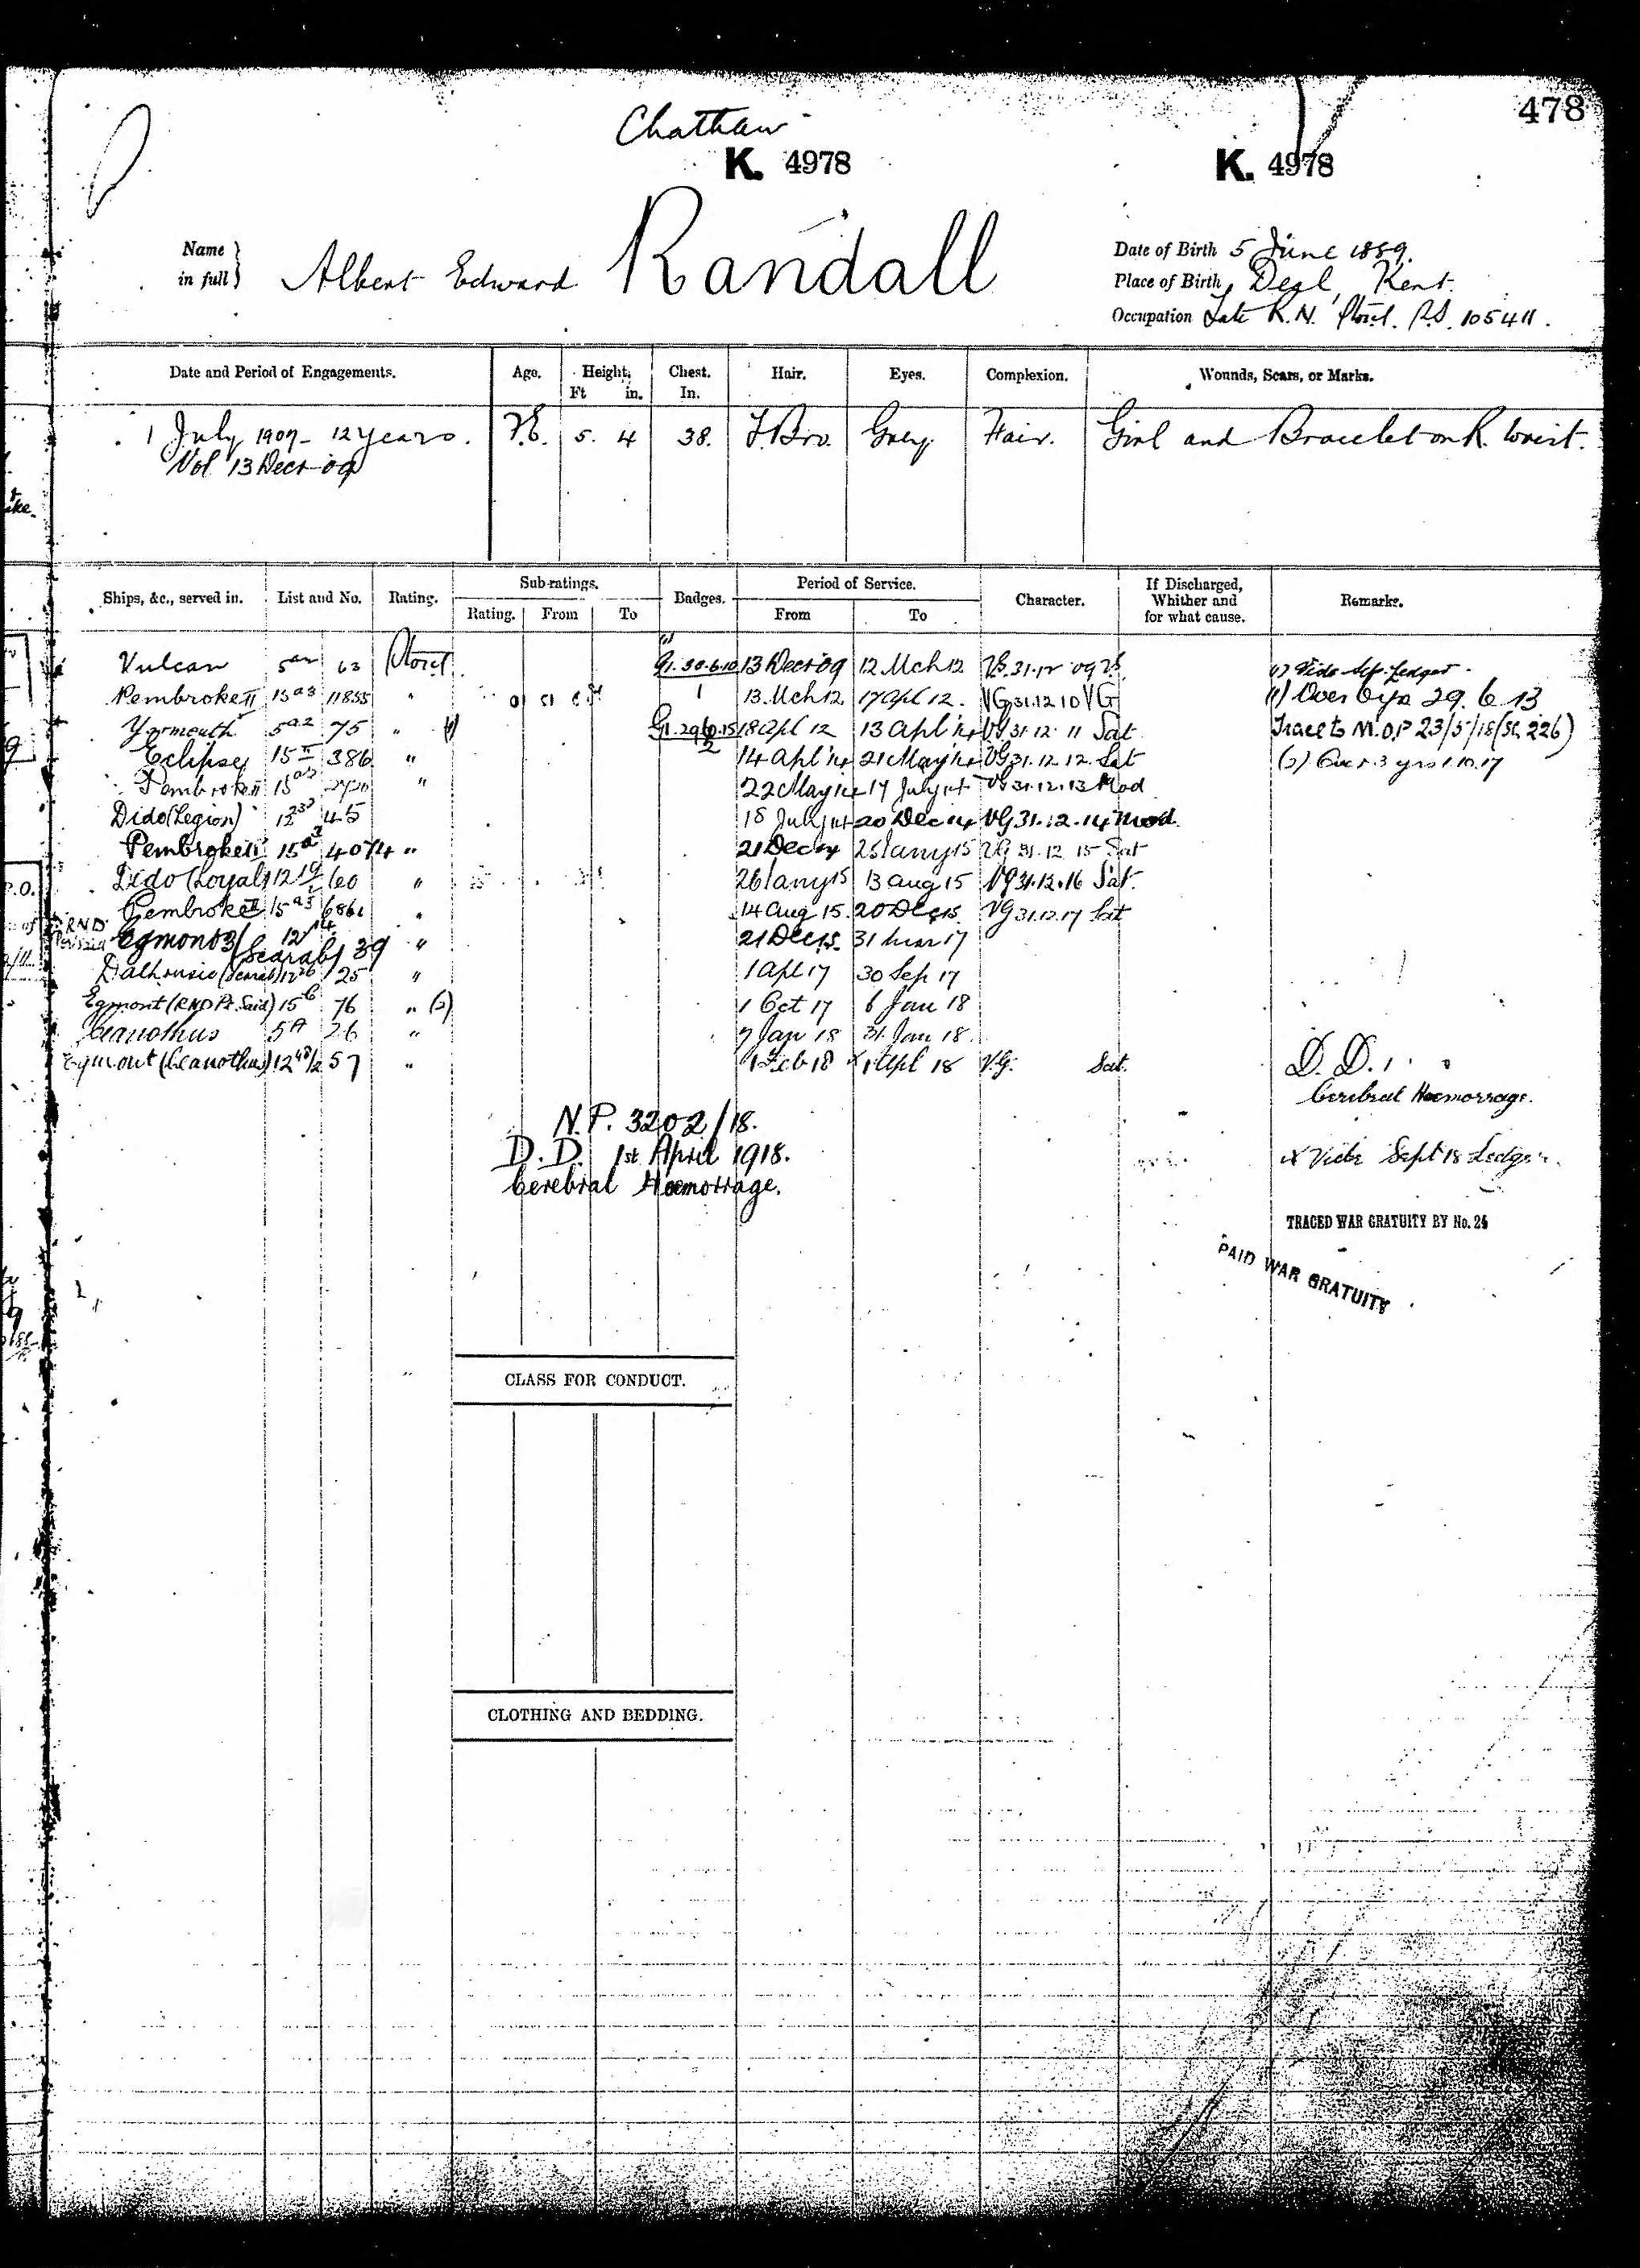 478
Chatham
K. 4978
K. 4978
Name in full } Albert Edward Randall
Date of Birth 5 June 1889.
Place of Birth, Deal, Kent.
Occupation Late R.N. Sto. 105411.
Date and Period of Engagements. Age. Height. Ft in. Chest. In. Hair. Eyes. Complexion. Wounds, Scars, or Marks.
1 July 1907 - 12 years. F.E. 5. 4 38. Grey. Fair. Girl and Bracelet on R. Wrist.
Vol 13 Decr 09
Ships, &c., served in. List and No. Rating. Sub-ratings. Badges. Period of Service. Character. If Discharged, Whither and for what cause. Remarks.
Rating. From To From To
Vulcan 63 G1.30.6.10 13 Decr 09 12 Mch 12 VG 31.12 09
Pembroke II 15 a3 11855 " 1 13. Mch 12 17 Apl 12. VG 31.12 10 VG (1) Over 29. 6. 13
Yarmouth 5 a2 75 " G1.29.6.15 2 18 Apl 12 13 Apl 14 VG 31 12 11 Sat Trace to M.O.P 23/5/18 (St. 226)
Eclipse 15 II 386 " 14 Apl 14 21 May 14 VG 31.12.12. Sat (2) Over 3 yrs 1.10.17
Pembroke II 15 " 22 May 14 17 July 14 VG 31.12.13 Mod
Dido (Legion) 45 18 July 14 20 Dec 14 VG 31.12.14 Mod.
Pembroke II 15 a3 4074 " 21 Dec 14 25 Jany 15 VG 31.12 15 Sat
Dido (Loyal) 12 60 " 26 Jany 15 13 Aug 15 VG 31.12.16 Sat.
Pembroke II 15 a3 " 14 Aug 15. 20 Dec 15 VG 31.12.17 Sat
RND Egmont (Scarab) 12 39 " 21 Dec 15. 31 Mar 17
Dalhousie (Scarab) 25 " 1 Apl 17 30 Sep 17
Egmont (RND Pt. Said) 15 76 " (2) 1 Oct 17 6 Jan 18
Ceanothus 5A 26 " 7 Jan 18 31 Jan 18.
Egmont (Ceanothus) 57 " 1 Feb 18 x 1 Apl 18 V.G. Sat. D. D.
Cerebral Haemorrage.
N.P. 3202/18.
D.D. 1st April 1918.
Cerebral Haemorrage.
x Vide Sept 18 Ledger.
TRACED WAR GRATUITY BY No. 25
PAID WAR GRATUITY
CLASS FOR CONDUCT.
CLOTHING AND BEDDING.